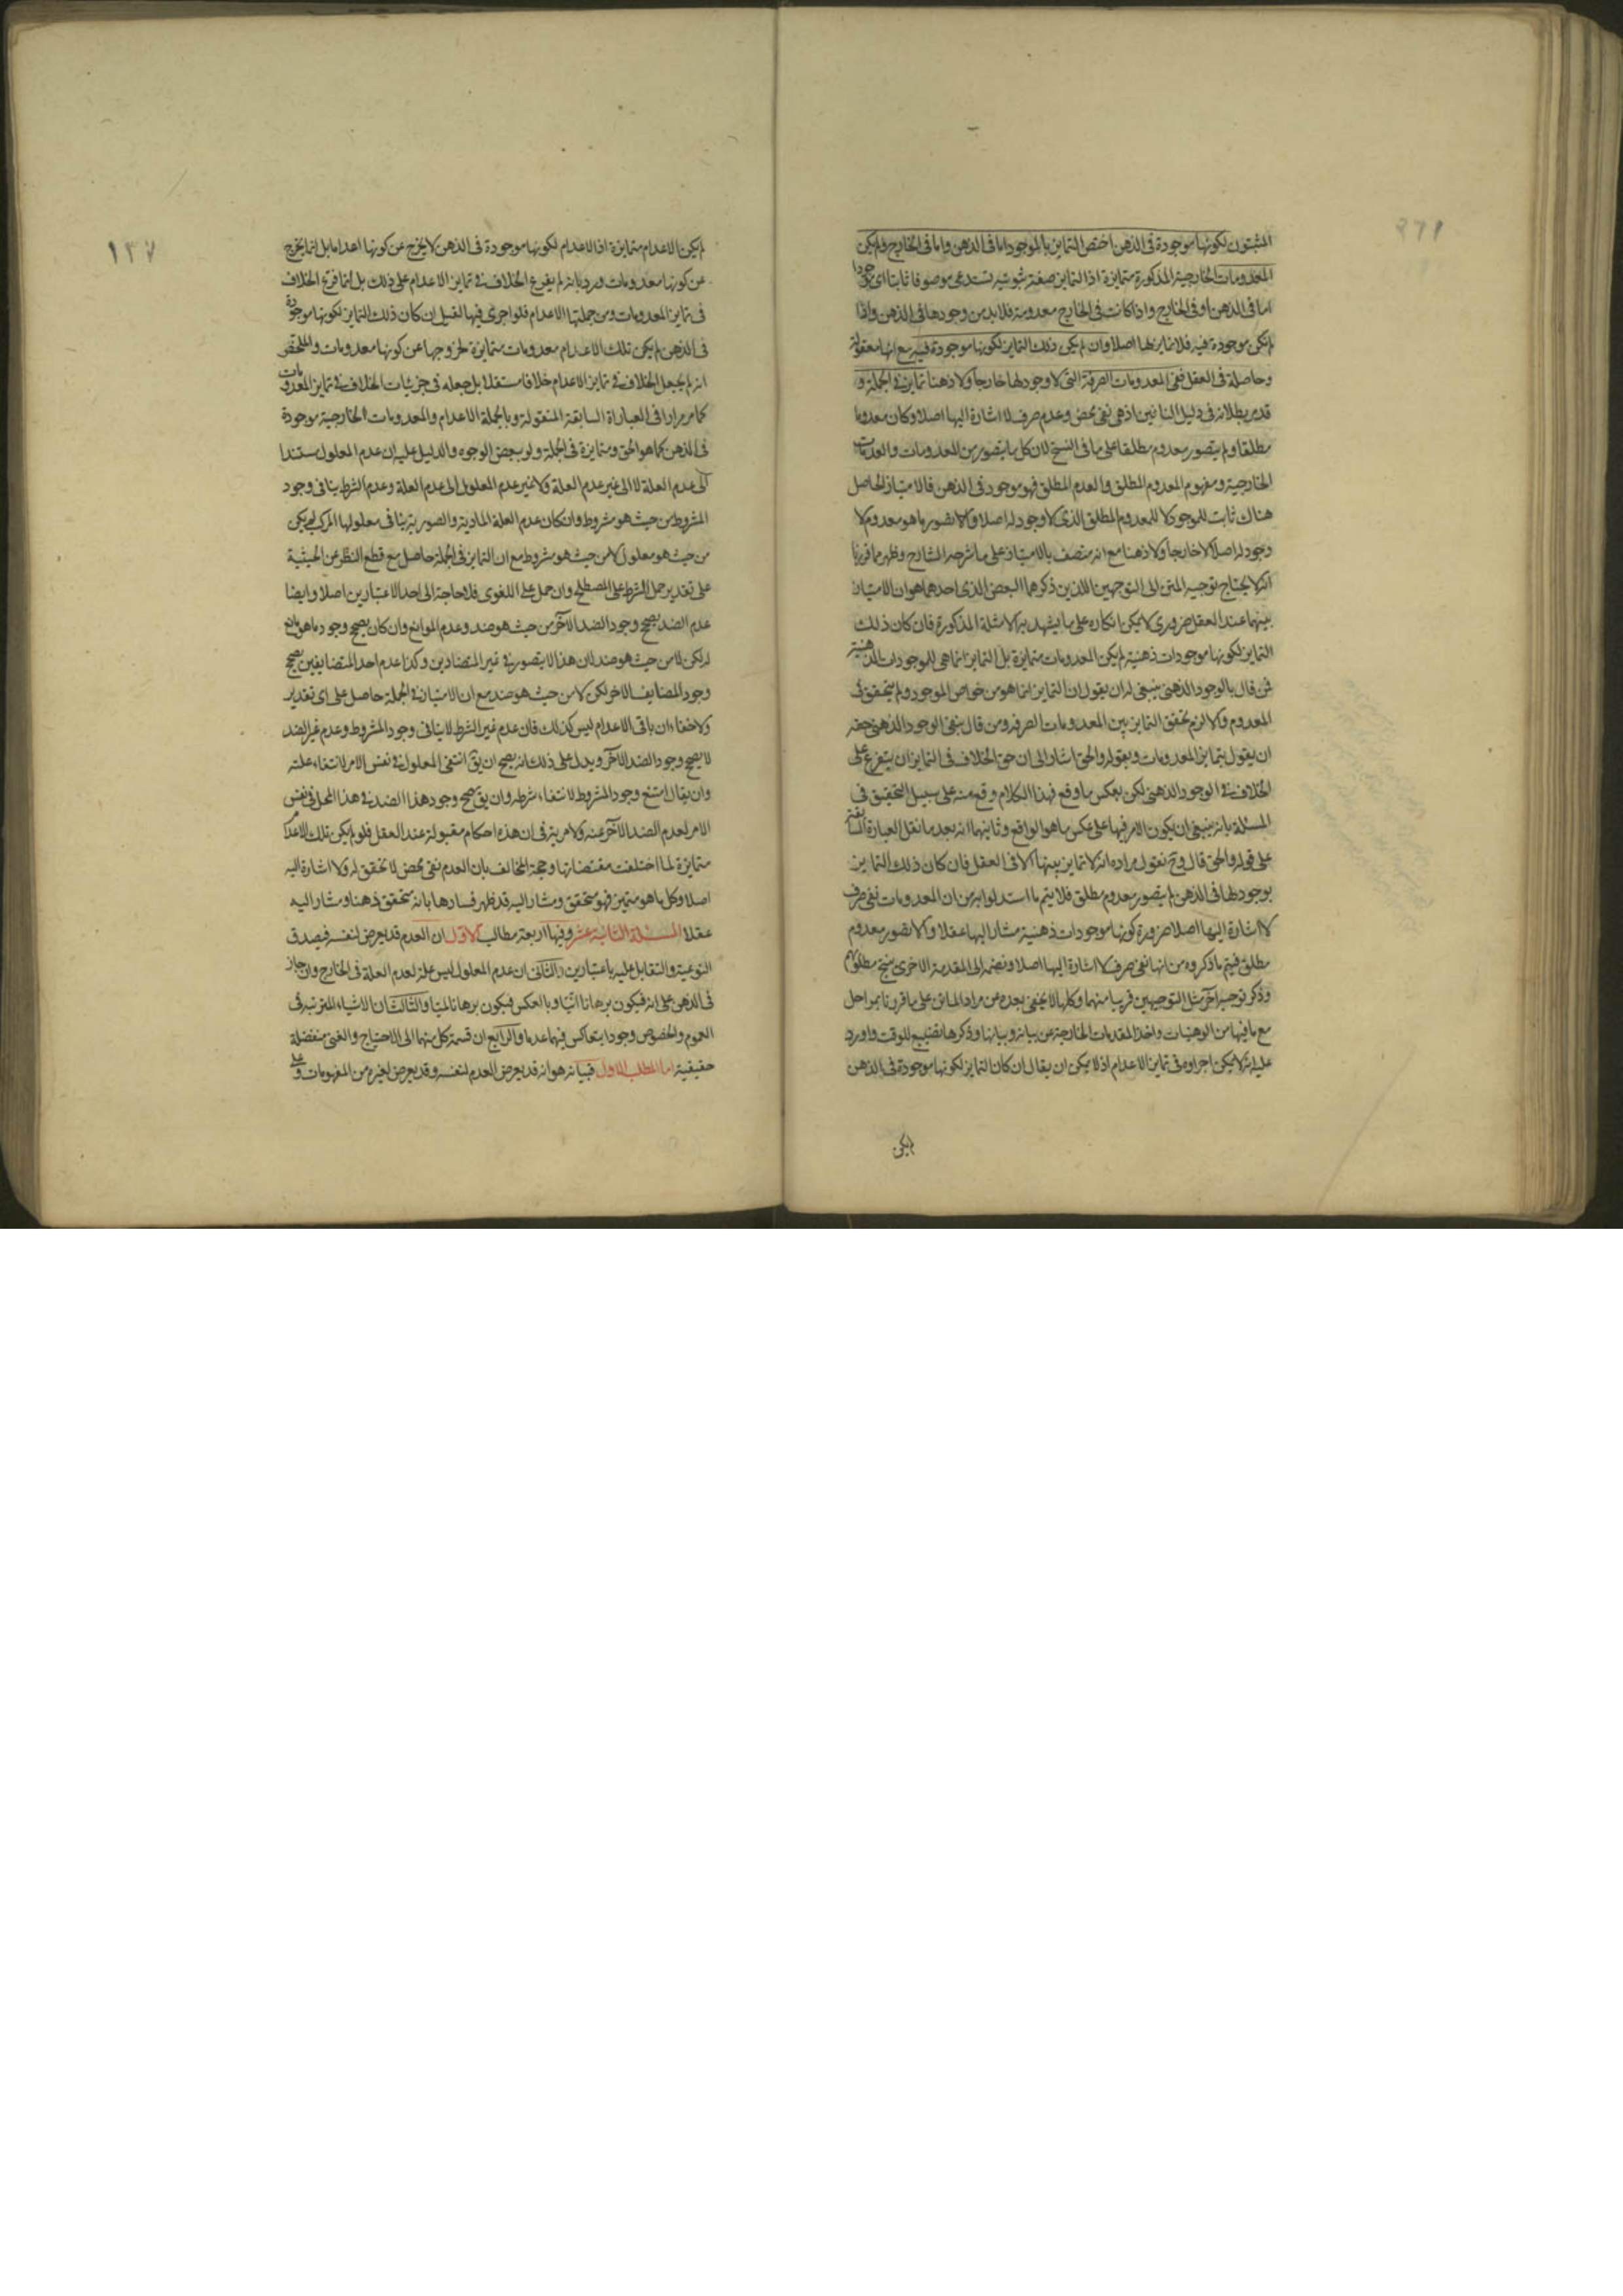 المثبتون لكونها موجودة فى الذهن اختص التمايز بالموجود اما فى الذهن واما فى الخارج ولم يكن
المعدومات الخارجية المذكورة متمايزة اذا التمايز صفة ثبوتيه تستدعى موصوفا ثابتا اى موجودا
اما فى الذهن او فى الخارج واذا كانت فى الخارج معدومة فلا بد من وجودها فى الذهن واذا
لم تكن موجودة فيه فلا تمايز لها اصلا وان لم يكن ذلك التمايز لكونها موجودة فيه مع انها معقولة
وحاصلة فى العقل ففى المعدومات الصرفة التى لا وجود لها خارجا ولا ذهنا تمايز فى الجملة و
قد مر بطلانه فى دليل النافين اذ هى نفى محض وعدم صرف لا اشارة اليها اصلا وكان معدوما
مطلقا ولم يتصور معدوم مطلقا على ما فى النسخ لان كل ما يتصور من المعدومات والعدمات
الخارجية ومفهوم المعدوم المطلق والعدم المطلق فهو موجود فى الذهن فالامتياز الحاصل
هناك ثابت للموجود لا للمعدوم المطلق الذى لا وجود له اصلا والا لتصور ما هو معدوم لا
وجود له اصلا لا خارجا ولا ذهنا مع انه متصف بالامتياز على ما شرحه الشارح وظهر مما قررنا
انه لا يحتاج توجيه المتن الى التوجهين اللذين ذكرهما البعض الذى احدهما هو ان الامتياز
بينهما عند العقل ضرورى لا يمكن انكاره على ما يشهد به الامثلة المذكورة فان كان ذلك
التمايز لكونها موجودات ذهنية لم يكن المعدومات متمايزة بل التمايز انما هى للموجودات الذهنية
فمن قال بالوجود الذهنى ينبغى له ان يقول ان التمايز انما هو من خواص الموجود ولم يتحقق فى
المعدوم والا لزم تحقق التمايز بين المعدومات الصرفه ومن قال بنفى الوجود الذهنى حقه
ان يقول بتمايز المعدومات وبقوله والحق اشار الى ان حق الخلاف فى التمايز ان يتفرع على
الخلاف فى الوجود الذهنى لكن بعكس ما وقع فهذا الكلام وقع منه على سبيل التحقيق فى
المسئلة بانه ينبغى ان يكون الامر فيها على عكس ما هو الواقع وثانيهما انه بعد ما نقل العبارة السابقة
على قوله والحق قال وح نقول مراده انه لا تمايز بينها الا فى العقل فان كان ذلك التمايز
بوجودها فى الذهن لم يتصور معدوم مطلق فلا يتم ما استدلوا به من ان المعدومات نفى صرف
لا اشارة اليها اصلا ضرورة كونها موجودات ذهنية مشار اليها عقلا والا لتصور معدوم
مطلق فيتم ما ذكروه من انها نفى صرف لا اشارة اليها اصلا ونضمه الى المقدمة الاخرى ينتج مطلوبهم
وذكر توجيه اخر مثل التوجيهين قريبا منهما وكلها لا يخفى بعده عن مراد الماتن على ما قررنا بمراحل
مع ما فيها من الوهنيات واخذ المقدمات الخارجة عن بيانه وبيانها وذكرها تضييع للوقت واورد
عليه انه لا يمكن اجراؤه فى تمايز الاعدام اذ لا يمكن ان يقال ان كان التمايز لكونها موجودة فى الذهن
لم يكن
١٣٧
لم يكن الاعدام متمايزة اذا الاعدام لكونها موجودة فى الذهن لا يخرج عن كونها اعداما بل انما يخرج
عن كونها معدومات ورد بانه لم يفرع الخلاف فى تمايز الاعدام على ذلك بل انما فرع الخلاف
فى تمايز المعدومات ومن جملتها الاعدام فلو اجرى فيها لقيل ان كان ذلك التمايز لكونها موجودة
فى الذهن لم يكن تلك الاعدام معدومات متمايزة لخروجها عن كونها معدومات والملخص
انه لم يجعل الخلاف فى تمايز الاعدام خلافا مستقلا بل جعله فى جزئيات الخلاف فى تمايز المعدومات
كما مر مرارا فى العبارة السابقة المنقولة وبالجملة الاعدام والمعدومات الخارجية موجودة
فى الذهن كما هو الحق ومتمايزة فى الجملة ولو ببعض الوجوه والدليل عليه ان عدم المعلول مستندا
الى عدم العلة لا الى غير عدم العلة ولا غير عدم المعلول الى عدم العلة وعدم الشرط ينافى وجود
المشروط من حيث هو مشروط وان كان عدم العلة المادية والصورية ينافى معلولها المركب لكن
من حيث هو معلول لا من حيث هو مشروط مع ان التمايز فى الجملة حاصل مع قطع النظر عن الحيثية
على تقدير حمل الشرط على المصطلح وان حمل على اللغوى فلا حاجة الى احد الاعتبارين اصلا وايضا
عدم الضد يصحح وجود الضد الآخر من حيث هو ضد وعدم الموانع وان كان يصحح وجود ما هو مانع
له لكن لا من حيث هو ضد لان هذا لا يتصور فى غير المتضادين وكذا عدم احد المتضايفين يصحح
وجود المضايف الاخر لكن لا من حيث هو ضد مع ان الامتياز فى الجملة حاصل على اى تقدير
ولا خفاء ان باقى الاعدام ليس كذلك فان عدم غير الشرط لا ينافى وجود المشروط وعدم غير الضد
لا يصحح وجود الضد الآخر ويدل على ذلك انه يصح ان يق انتفى المعلول فى نفس الامر لانتفاء علته
وان يقال امتنع وجود المشروط لانتفاء شرطه وان يق صح وجود هذا الضد فى هذا المحل فى نفس
الامر لعدم الضد الآخر عنه ولا مرية فى ان هذه احكام مقبولة عند العقل فلو لم يكن تلك الاعدام
متمايزة لما اختلفت مقتضاتها وحجة المخالف بان العدم نفى محض لا تحقق له ولا اشارة اليه
اصلا وكل ما هو متميز فهو متحقق ومشار اليه قد ظهر فسادها بانه متحقق ذهنا ومشار اليه
عقلا المسئلة الثانية عشر وفيها اربعة مطالب الاول ان العدم قد يعرض لنفسه فيصدق
النوعية والتقابل عليه باعتبارين والثانى ان عدم المعلول ليس علة لعدم العلة فى الخارج وان جاز
فى الذهن على انه فيكون برهانا انيا وبالعكس فيكون برهانا لميا والثالث ان الاشياء المترتبة فى
العموم والخصوص وجودا يتعاكس فيهما عدما والرابع ان قسمة كل منهما الى الاحتياج والغنى منفصلة
حقيقية اما المطلب الاول فبيانه هو انه قد يعرض العدم لنفسه وقد يعرض لغيره من المفهومات وعلى